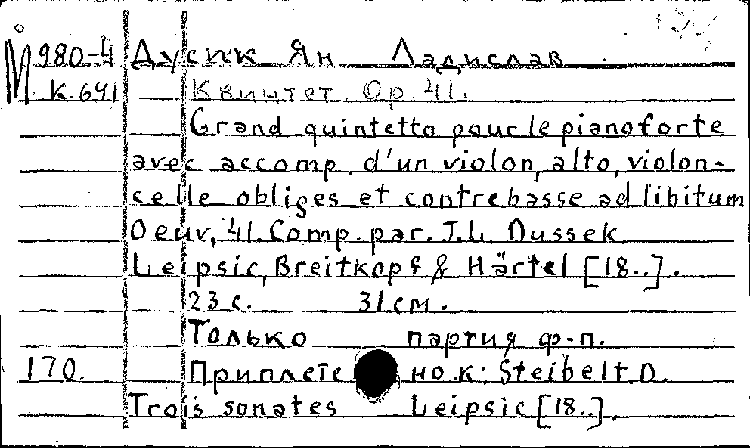 М 980-4 Дусик Ян Ладислав.
К.641 Квинтет. Op. 41.
Grand quintetto pour le pianoforte
avec accomp. d'un violon, alto, violon-
celle obliges et contrebasse ad libitum
Oeuv. 41. Comp. par. J.L. Dussek
Leipsic, Breitkopf & Härtel [18..].
23 с. 31 см.
Только партия ф-п.
170. Приплетено к: Steibelt D.
Trois sonates Leipsic [18..].